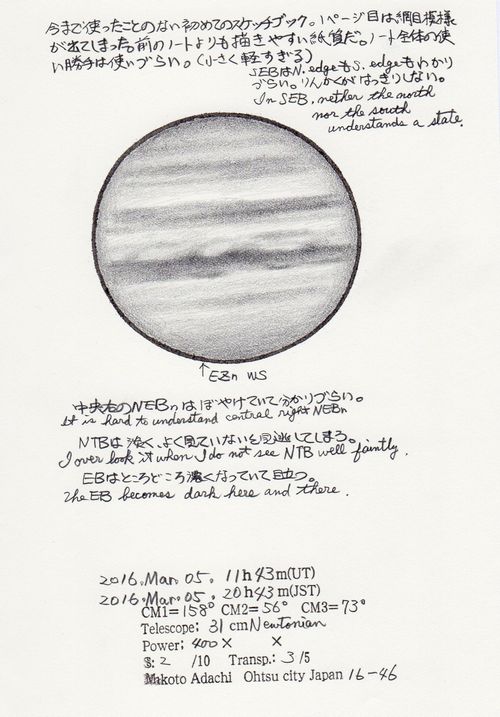 今まで使ったことのない初めてのスケッチブック。1ページ目は網目模様
が出てしまった。前のノートよりも描きやすい紙質だ。ノート全体の使
い勝手は使いづらい。(小さく軽すぎる)
SEBはN. edgeもS. edgeもわかり
づらい。りんかくがはっきりしない。
In SEB, nether the north
nor the south
understands a state.
↑EZn WS
中央右のNEBnはぼやけていて分かりづらい。
It is hard to understand central right NEBn
NTBは淡く、よく見ていないと見逃してしまう。
I over look it when I do not see NTB well faintly.
EBはところどころ濃くなっていて目立つ。
The EB becomes dark here and there.
2016. Mar. 05. 11h43m(UT)
2016. Mar. 05. 20h43m(JST)
CM1=158° CM2=56° CM3=73°
Telescope: 31cm Newtonian
Power: 400× ×
S: 2 /10 Transp.: 3/5
Makoto Adachi Ohtsu city Japan 16-46